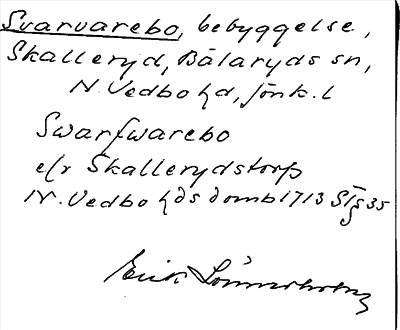 Svarvarebo, bebyggelse,
Skalleryd, Bälaryds sn,
N. Vedbo hd, Jönk. l
Swarfwarebo
e/r Skallerydstorp
N. Vedbo hds domb 1713 S 35
Erik